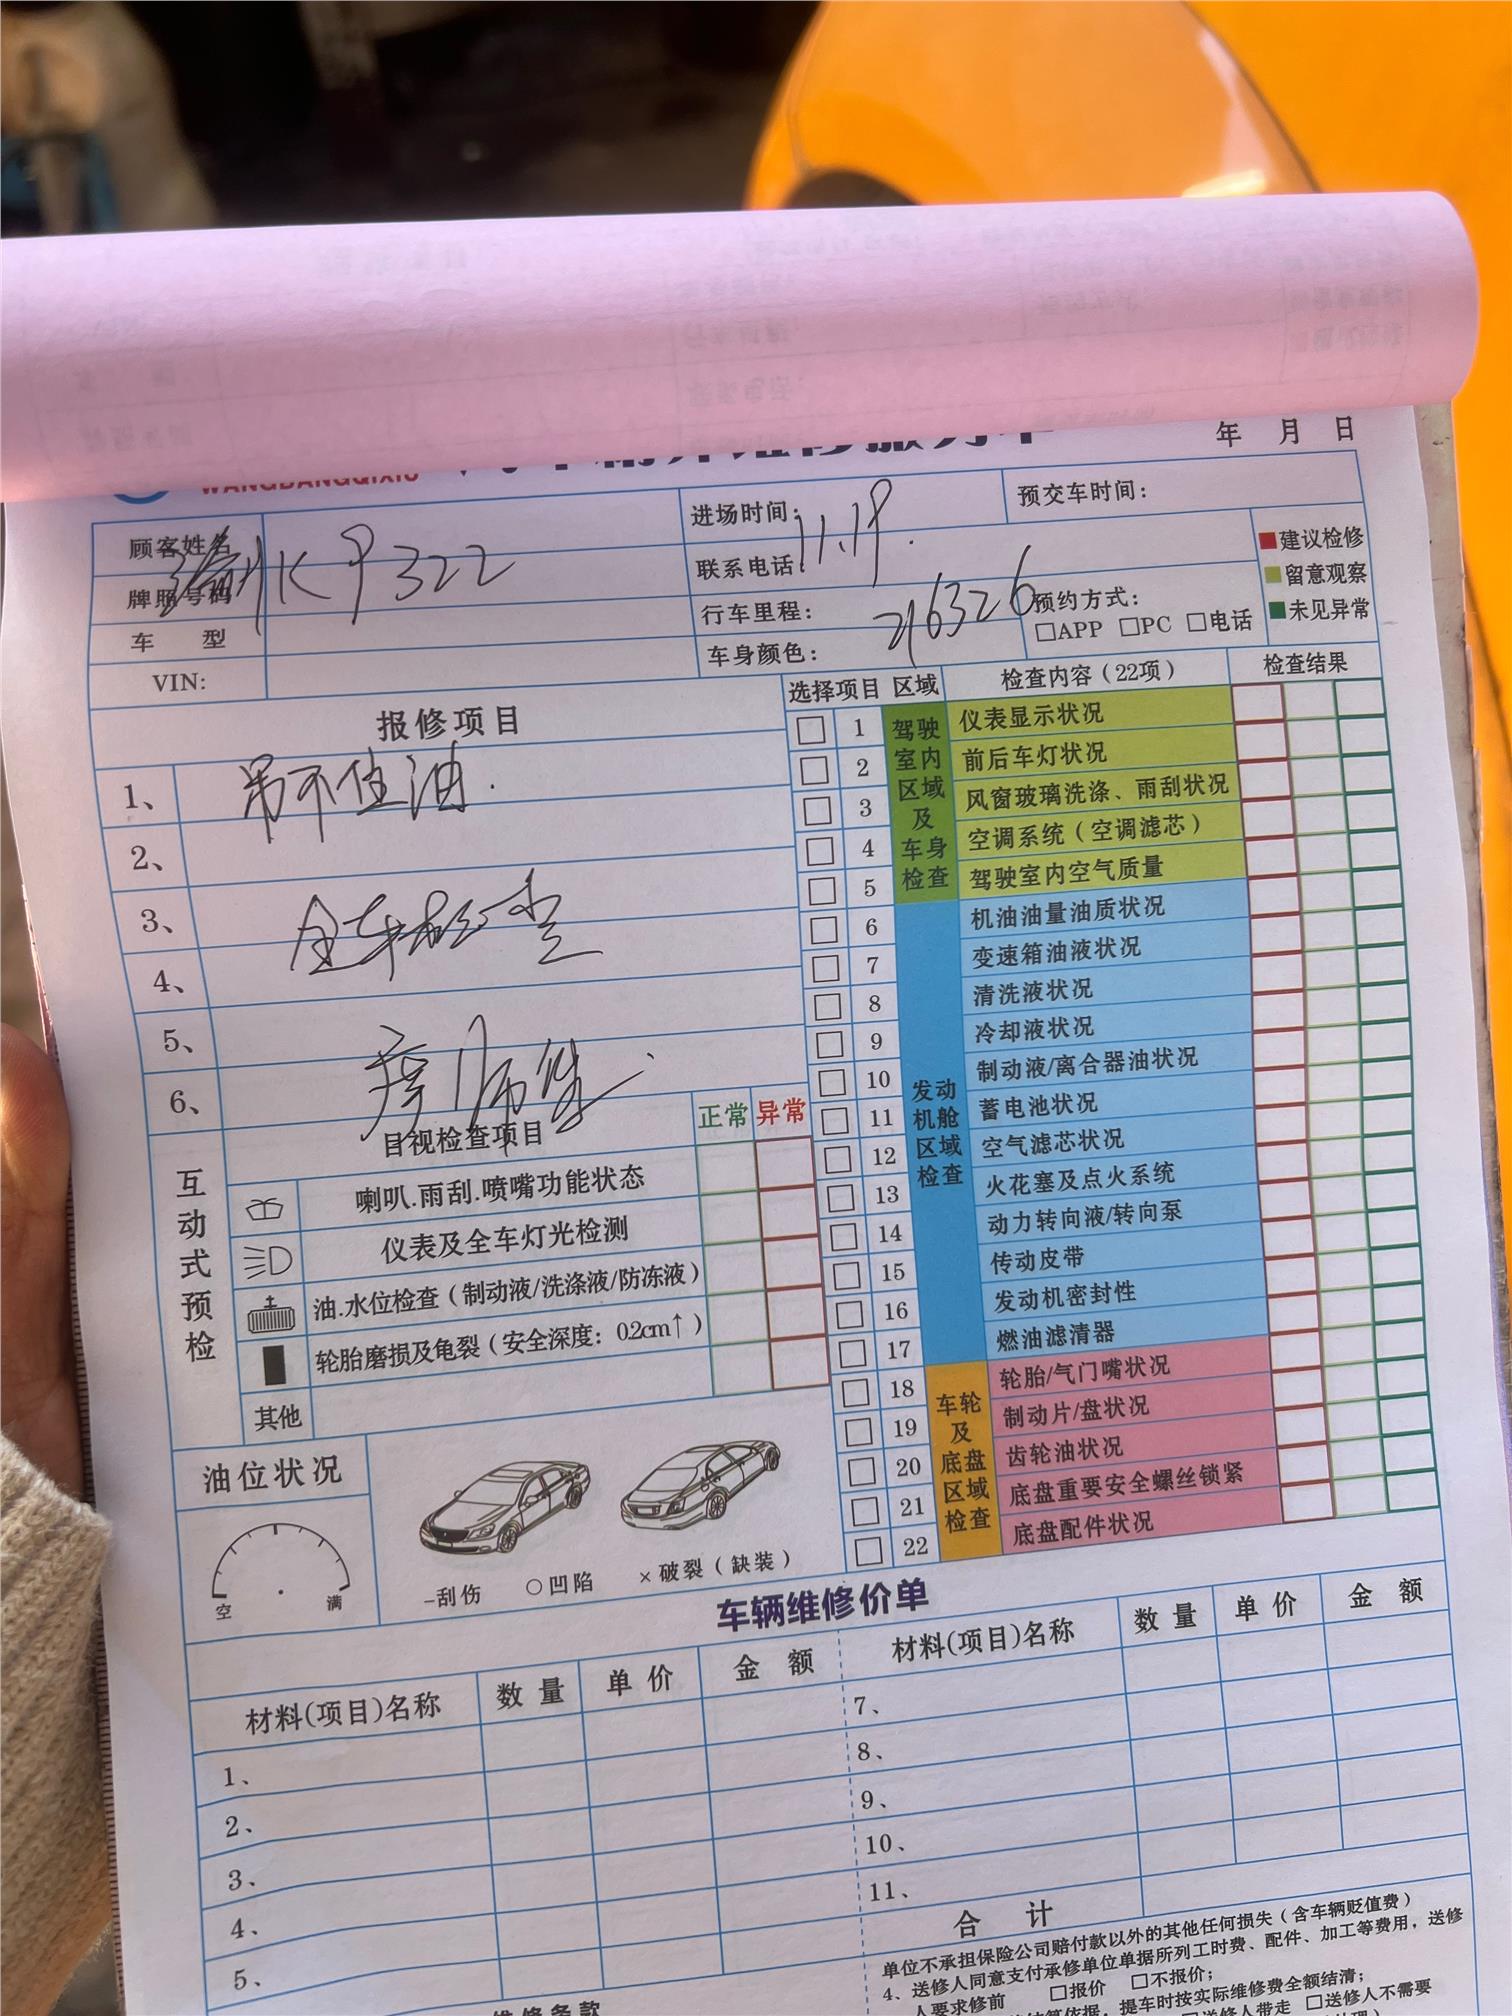 WANGBANGQIXIU
年 月 日
顾客姓名
进场时间:
11.19.
预交车时间:
牌照号码
渝K9322
联系电话:
车 型
行车里程:
216326
预约方式:
□APP □PC □电话
VIN:
车身颜色:
建议检修
留意观察
未见异常
报修项目
1、 吊不住油.
2、
3、 全车检查
4、
5、
6、
选择项目 区域 检查内容(22项) 检查结果
驾驶室内区域及车身检查
1 仪表显示状况
2 前后车灯状况
3 风窗玻璃洗涤、雨刮状况
4 空调系统(空调滤芯)
5 驾驶室内空气质量
发动机舱区域检查
6 机油油量油质状况
7 变速箱油液状况
8 清洗液状况
9 冷却液状况
10 制动液/离合器油状况
11 蓄电池状况
12 空气滤芯状况
13 火花塞及点火系统
14 动力转向液/转向泵
15 传动皮带
16 发动机密封性
17 燃油滤清器
车轮及底盘区域检查
18 轮胎/气门嘴状况
19 制动片/盘状况
20 齿轮油状况
21 底盘重要安全螺丝锁紧
22 底盘配件状况
互动式预检
目视检查项目 正常 异常
喇叭.雨刮.喷嘴功能状态
仪表及全车灯光检测
油.水位检查(制动液/洗涤液/防冻液)
轮胎磨损及龟裂(安全深度: 0.2cm↑)
其他
油位状况
空 满
-刮伤 ○凹陷 ×破裂(缺装)
车辆维修价单
材料(项目)名称 数量 单价 金额 材料(项目)名称 数量 单价 金额
1、 7、
2、 8、
3、 9、
4、 10、
5、 11、
合 计
单位不承担保险公司赔付款以外的其他任何损失(含车辆贬值费)
4、送修人同意支付承修单位单据所列工时费、配件、加工等费用，送修
人要求修前 □报价 □不报价;
提车时按实际维修费全额结清;
□送修人带走 □送修人不需要
维修条款